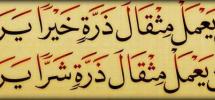 يَعْمَلْ مِثْقَالَ ذَرَّةٍ خَيْرًا يَر
يَعْمَلْ مِثْقَالَ ذَرَّةٍ شَرًّا يَر